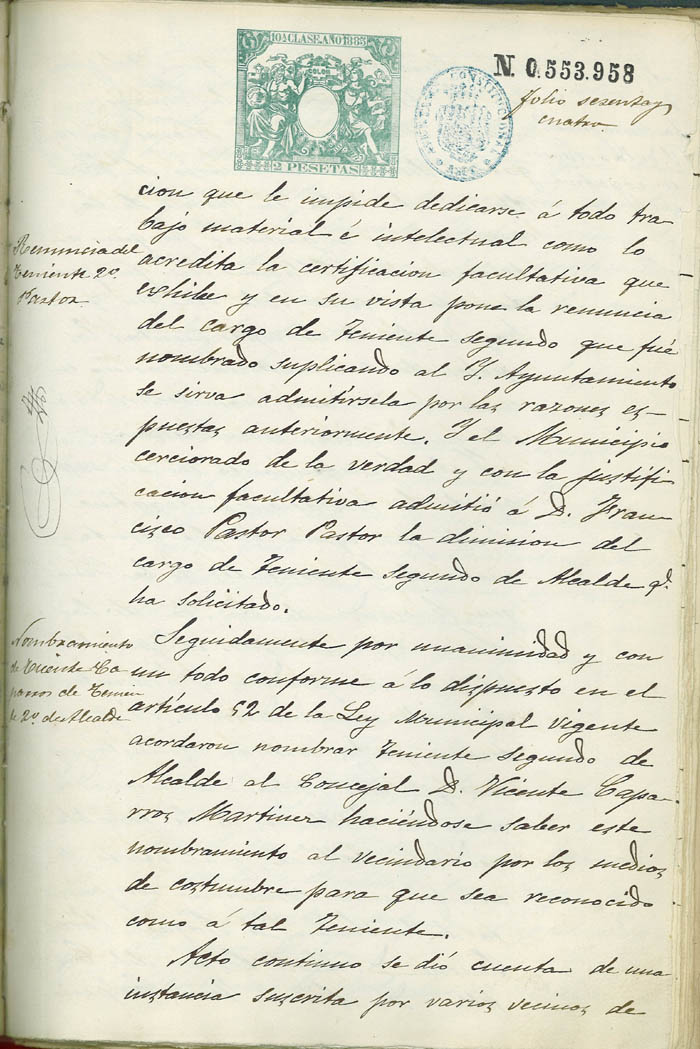 10ª CLASE. AÑO 1885
2 PESETAS
N. 0.553.958
CONSTITUCIONAL
folio sesentay
cuatro.
Renuncia del
Teniente 2º.
Pastor
cion que le impide dedicarse á todo tra-
bajo material é intelectual como lo
acredita la certificacion facultativa que
exhibe y en su vista pone la renuncia
del cargo de Teniente segundo que fué
nombrado suplicando al Y. Ayuntamiento
se sirva admitirsela por las razones es-
puestas anteriormente. Y el Municipio
cerciorado de la verdad y con la justifi
cacion facultativa admitió á D. Fran
cisco Pastor Pastor la dimision del
cargo de Teniente segundo de Alcalde q.
ha solicitado.
Nombramiento
de Vicente Ca
parros de Tenien
te 2º. de Alcalde
Seguidamente por unanimidad y con
un todo conforme á lo dispuesto en el
artículo 52 de la Ley Municipal vigente
acordaron nombrar Teniente segundo de
Alcalde al Concejal D. Vicente Capa-
rros Martinez haciéndose saber este
nombramiento al vecindario por los medios
de costumbre para que sea reconocido
como á tal Teniente.
Acto continuo se dió cuenta de una
instancia suscrita por varios vecinos de